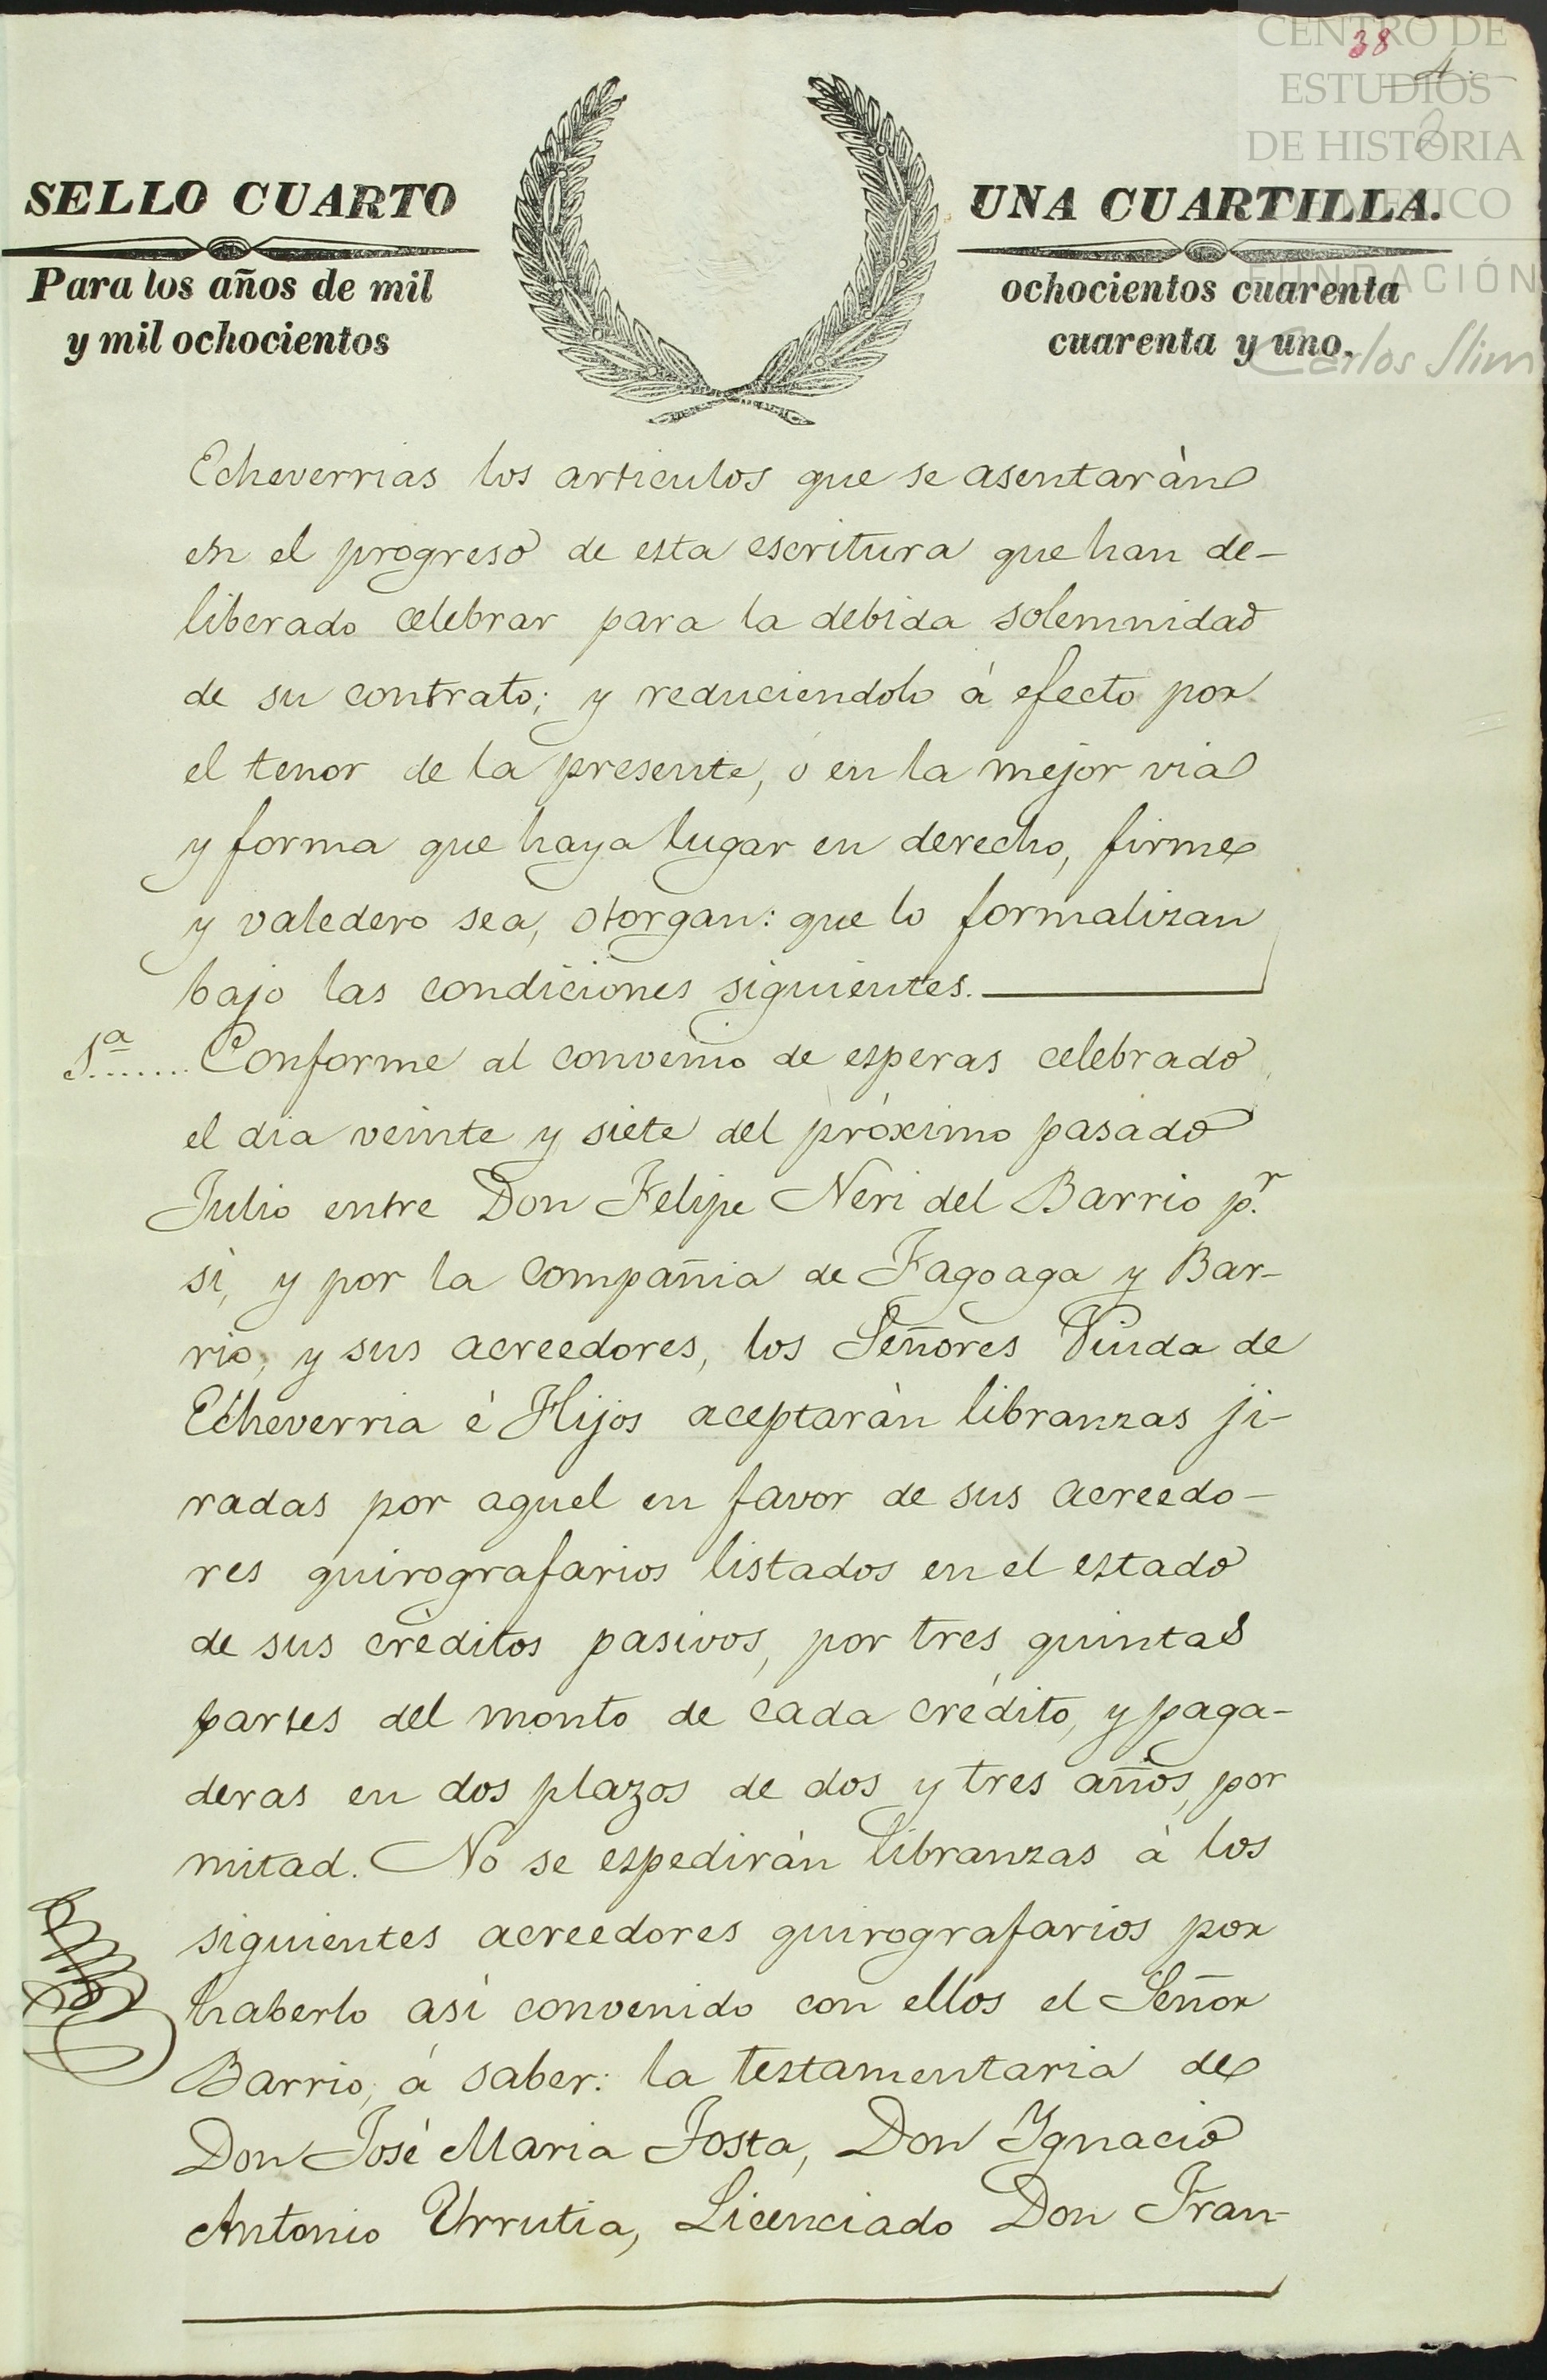 38
CENTRO DE
ESTUDIOS
DE HISTORIA
DE MÉXICO
FUNDACIÓN
Carlos Slim
SELLO CUARTO
UNA CUARTILLA.
Para los años de mil
ochocientos cuarenta
y mil ochocientos
cuarenta y uno.
Echeverrias los articulos que se asentaràn
en el progreso de esta escritura que han de-
liberado celebrar para la debida solemnidad
de su contrato; y reduciendolo à efecto por
el tenor de la presente, ó en la mejor via
y forma que haya lugar en derecho, firme
y valedero sea, otorgan: que lo formalizan
bajo las condiciones siguientes.
1ª....... Conforme al convenio de esperas celebrado
el dia veinte y siete del próximo pasado
Julio entre Don Felipe Neri del Barrio p.r
sì, y por la compañia de Fagoaga y Bar-
rio, y sus acreedores, los Señores Viuda de
Echeverria è Hijos aceptaràn libranzas ji-
radas por aquel en favor de sus acreedo-
res quirografarios listados en el estado
de sus crèditos pasivos, por tres quintas
partes del monto de cada crédito, y paga-
deras en dos plazos de dos y tres años, por
mitad. No se espediràn libranzas à los
siguientes acreedores quirografarios por
haberlo asì convenido con ellos el Señor
Barrio, á saber: la testamentaria de
Don José Maria Josta, Don Ygnacio
Antonio Urrutia, Licenciado Don Fran-